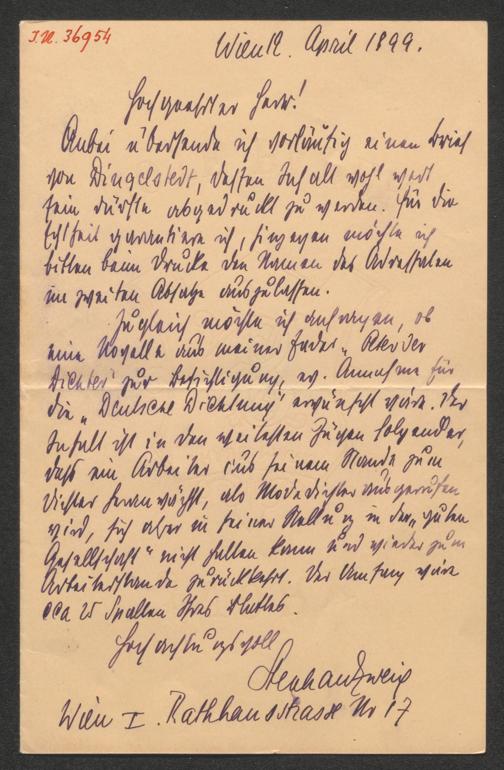 I.N. 36954
Wien 12. April 1899.
Hochgeehrter Herr!
Anbei übersende ich vorläufig einen Brief
von Dingelstedt, dessen Inhalt wohl wert
sein dürfte abgedruckt zu werden. Für die
Echtheit garantiere ich, hingegen möchte ich
bitten beim Drucke den Namen des Adressaten
im zweiten Absatze auszulassen.
Zugleich möchte ich anfragen, ob
eine Novelle aus meiner Feder „
Dichter" zur Besichtigung, ev. Annahme für
die „Deutsche Dichtung" erwünscht wäre. Der
Inhalt ist in den weitesten Zügen folgender,
dass ein Arbeiter aus seinem Stande zum
Dichter heranwächst, als Modedichter ausgerufen
wird, sich aber in seiner Stellung in der „guten
Gesellschaft" nicht halten kann und wieder zum
Arbeiterstande zurückkehrt. Der Umfang wäre
cca 25 Spalten Ihres Blattes.
Hochachtungsvoll
Stephan Zweig
Wien I. Rathhausstrasse Nr 17